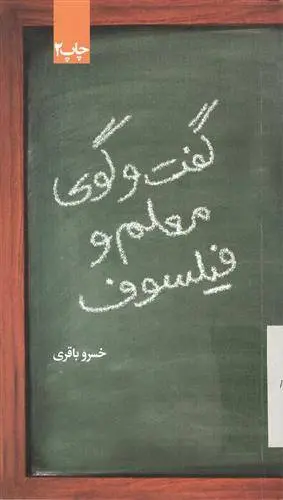 چاپ ۲
گفت و گوی
معلم و
فیلسوف
خسرو باقری